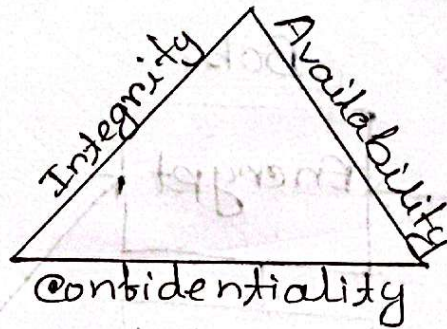 Integrity
Availability
Confidentiality